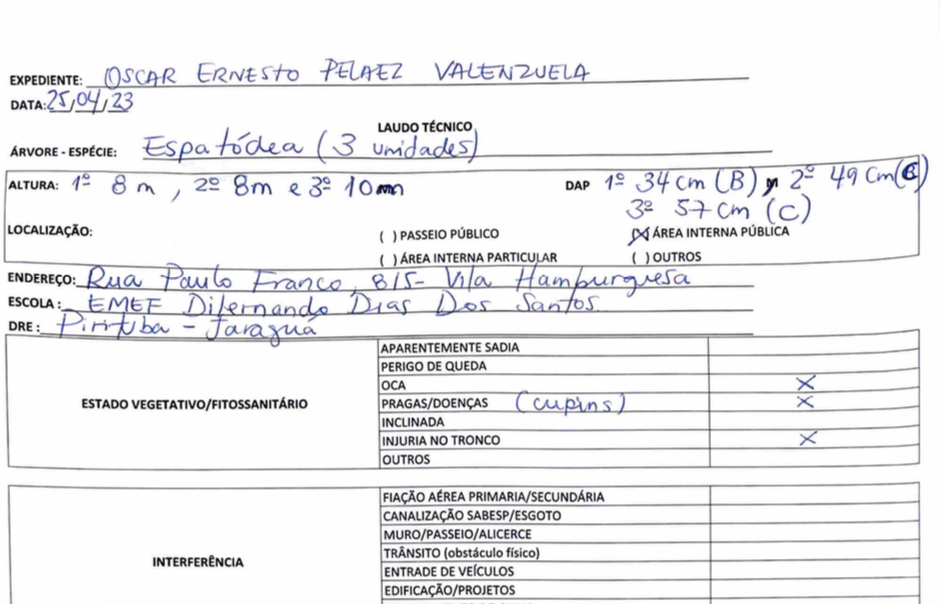 EXPEDIENTE: OSCAR ERNESTO PELAEZ VALENZUELA
DATA: 25/04/23
LAUDO TÉCNICO
ÁRVORE - ESPÉCIE: Espatódea (3 unidades)
ALTURA: 1º 8 m, 2º 8m e 3º 10m DAP 1º 34 cm (B) 2º 49 cm
3º 57 cm (C)
LOCALIZAÇÃO: ( ) PASSEIO PÚBLICO (X) ÁREA INTERNA PÚBLICA
( ) ÁREA INTERNA PARTICULAR ( ) OUTROS
ENDEREÇO: Rua Paulo Franco, 815- Vila Hamburguesa
ESCOLA: EMEF Dilernando Dias Dos Santos
DRE: Pirituba - Jaraguá
ESTADO VEGETATIVO/FITOSSANITÁRIO
APARENTEMENTE SADIA
PERIGO DE QUEDA
OCA X
PRAGAS/DOENÇAS (cupins) X
INCLINADA
INJURIA NO TRONCO X
OUTROS
INTERFERÊNCIA
FIAÇÃO AÉREA PRIMARIA/SECUNDÁRIA
CANALIZAÇÃO SABESP/ESGOTO
MURO/PASSEIO/ALICERCE
TRÂNSITO (obstáculo físico)
ENTRADE DE VEÍCULOS
EDIFICAÇÃO/PROJETOS